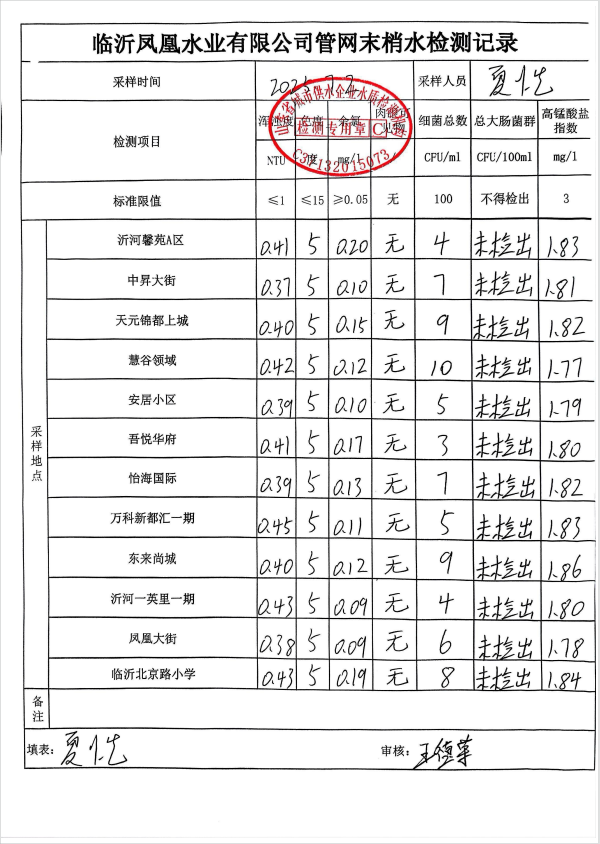 临沂凤凰水业有限公司管网末梢水检测记录
采样时间 2025.7.2 采样人员
检测项目 浑浊度 色度 余氯 肉眼可见物 细菌总数 总大肠菌群 高锰酸盐指数
NTU 度 mg/l CFU/ml CFU/100ml mg/l
山东省城市供水企业水质检测
检测专用章 C
C37132015073
标准限值 ≤1 ≤15 ≥0.05 无 100 不得检出 3
采样地点
沂河馨苑A区 0.41 5 0.20 无 4 未检出 1.83
中昇大街 0.37 5 0.10 无 7 未检出 1.81
天元锦都上城 0.40 5 0.15 无 9 未检出 1.82
慧谷领域 0.42 5 0.12 无 10 未检出 1.77
安居小区 0.39 5 0.10 无 5 未检出 1.79
吾悦华府 0.41 5 0.17 无 3 未检出 1.80
怡海国际 0.39 5 0.13 无 7 未检出 1.82
万科新都汇一期 0.45 5 0.11 无 5 未检出 1.83
东来尚城 0.40 5 0.12 无 9 未检出 1.86
沂河一英里一期 0.43 5 0.09 无 4 未检出 1.80
凤凰大街 0.38 5 0.09 无 6 未检出 1.78
临沂北京路小学 0.43 5 0.19 无 8 未检出 1.84
备注
填表： 审核：